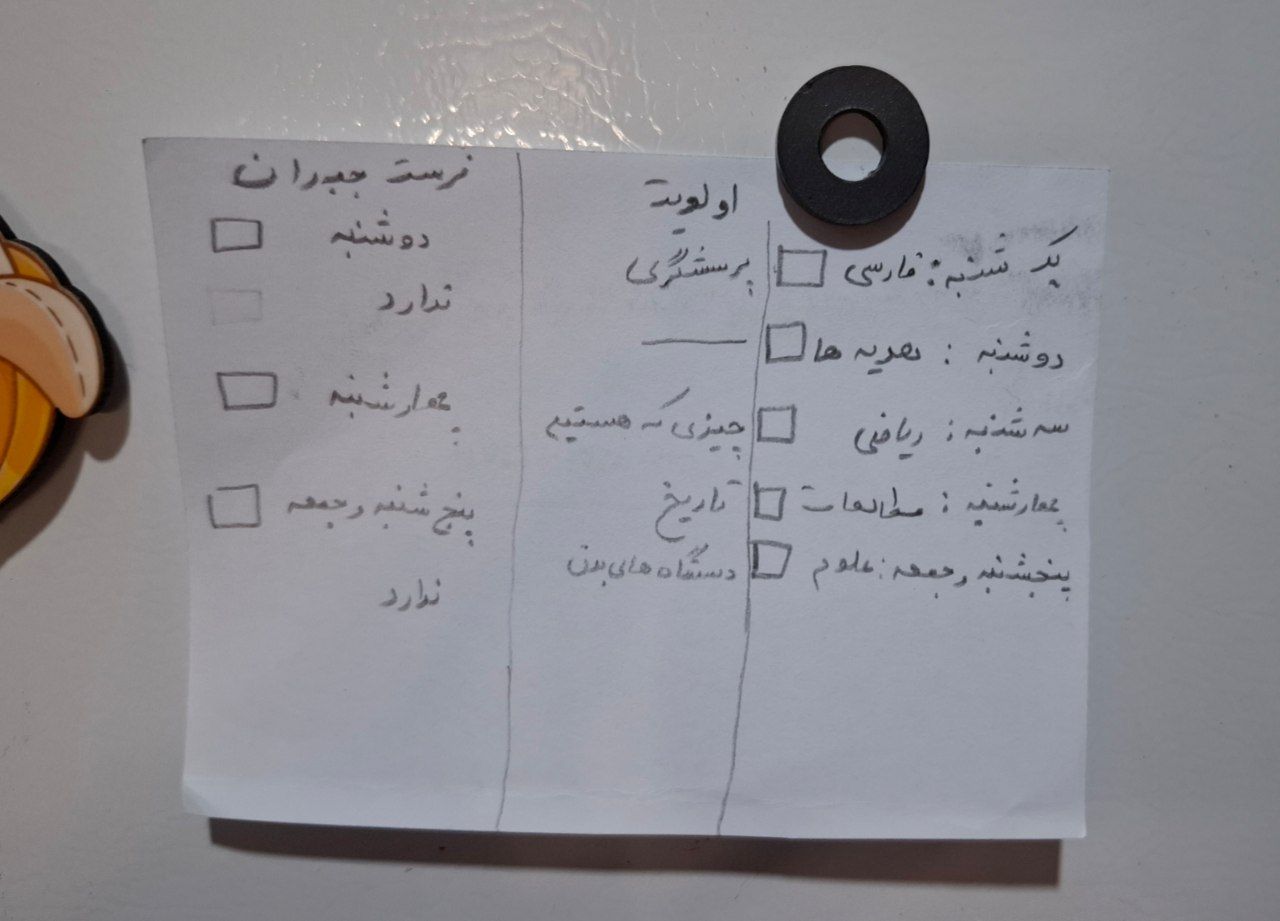 یک شنبه: فارسی
دوشنبه: هدیه ها
سه شنبه: ریاضی
چهارشنبه: مطالعات
پنجشنبه و جمعه: علوم
اولویت
پرسشگری
چیزی که هستیم
تاریخ
دستگاه های بدن
فرست جبران
دوشنبه
ندارد
چهارشنبه
پنج شنبه و جمعه
ندارد